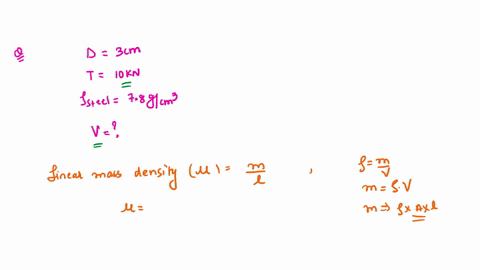 Q D = 3cm
T = 10KN
ρsteel = 7.8 g/cm³
V = ?
linear mass density (μ) = m/l , ρ = m/V
m = ρ.V
μ = m ⇒ ρ x A x l